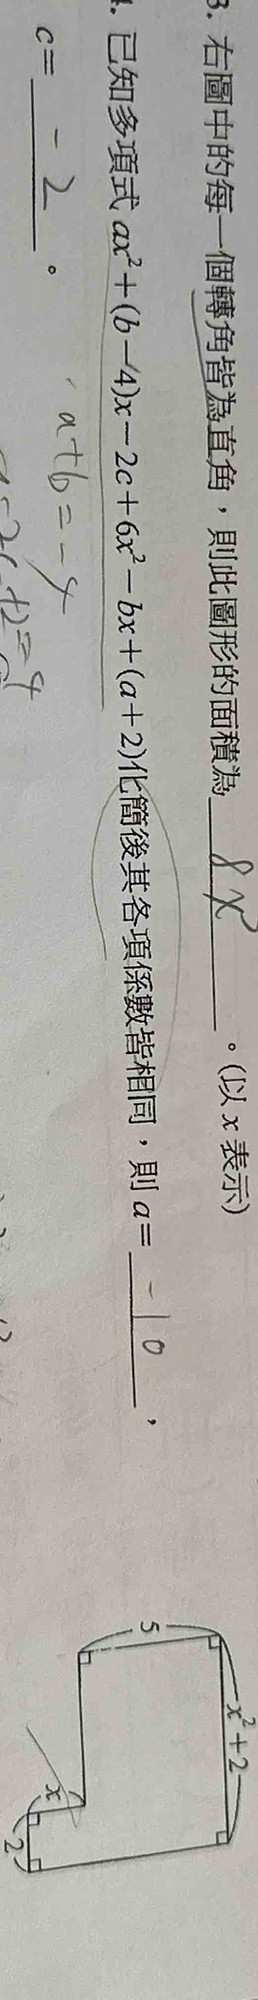 3. 右圖中的每一個轉角皆為直角，則此圖形的面積為 8x 。(以 x 表示)
x²+2
5
x
2
4. 已知多項式 ax²+(b−4)x−2c+6x²−bx+(a+2)化簡後其各項係數皆相同，則 a= -10 ，
c= -2 。
a+6=-4